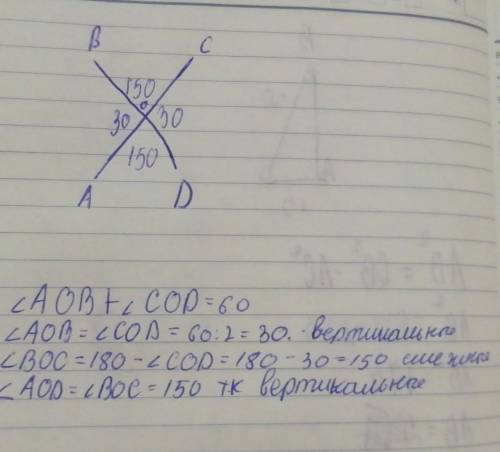 B C
150
O
30 30
150
A D
∠AOB + ∠COD = 60
∠AOB = ∠COD = 60:2 = 30. - вертикальные
∠BOC = 180 - ∠COD = 180 - 30 = 150 смежные
∠AOD = ∠BOC = 150 тк вертикальные